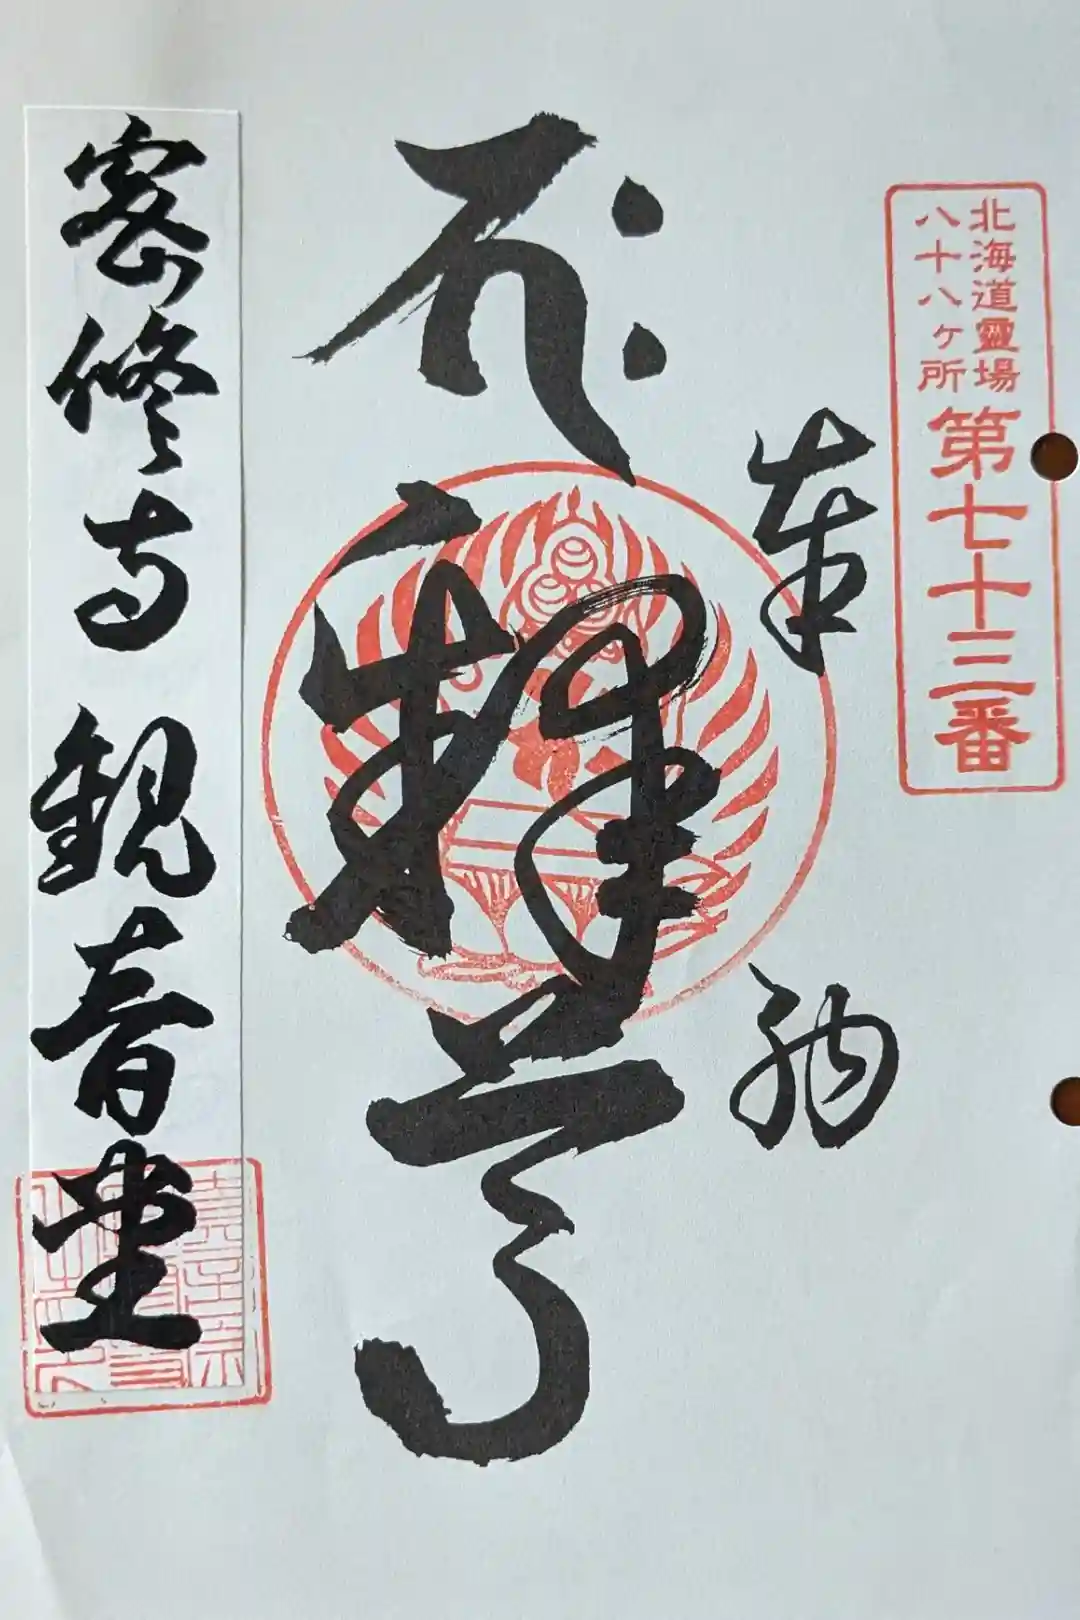 北海道霊場
八十八ヶ所
第七十三番
奉納
釋尊
密修寺 観音堂